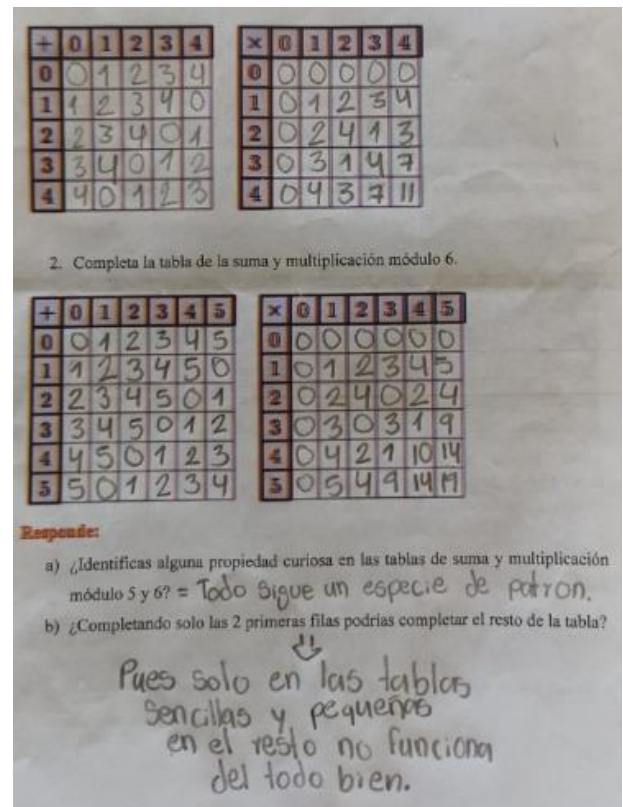 + 0 1 2 3 4
0 0 1 2 3 4
1 1 2 3 4 0
2 2 3 4 0 1
3 3 4 0 1 2
4 4 0 1 2 3
× 0 1 2 3 4
0 0 0 0 0 0
1 0 1 2 3 4
2 0 2 4 1 3
3 0 3 1 4 7
4 0 4 3 7 11
2. Completa la tabla de la suma y multiplicación módulo 6.
+ 0 1 2 3 4 5
0 0 1 2 3 4 5
1 1 2 3 4 5 0
2 2 3 4 5 0 1
3 3 4 5 0 1 2
4 4 5 0 1 2 3
5 5 0 1 2 3 4
× 0 1 2 3 4 5
0 0 0 0 0 0 0
1 0 1 2 3 4 5
2 0 2 4 0 2 4
3 0 3 0 3 1 9
4 0 4 2 1 10 14
5 0 5 4 9 14 19
Responde:
a) ¿Identificas alguna propiedad curiosa en las tablas de suma y multiplicación
módulo 5 y 6? = Todo sigue un especie de patron.
b) ¿Completando solo las 2 primeras filas podrías completar el resto de la tabla?
Pues solo en las tablas
sencillas y pequeñas
en el resto no funciona
del todo bien.